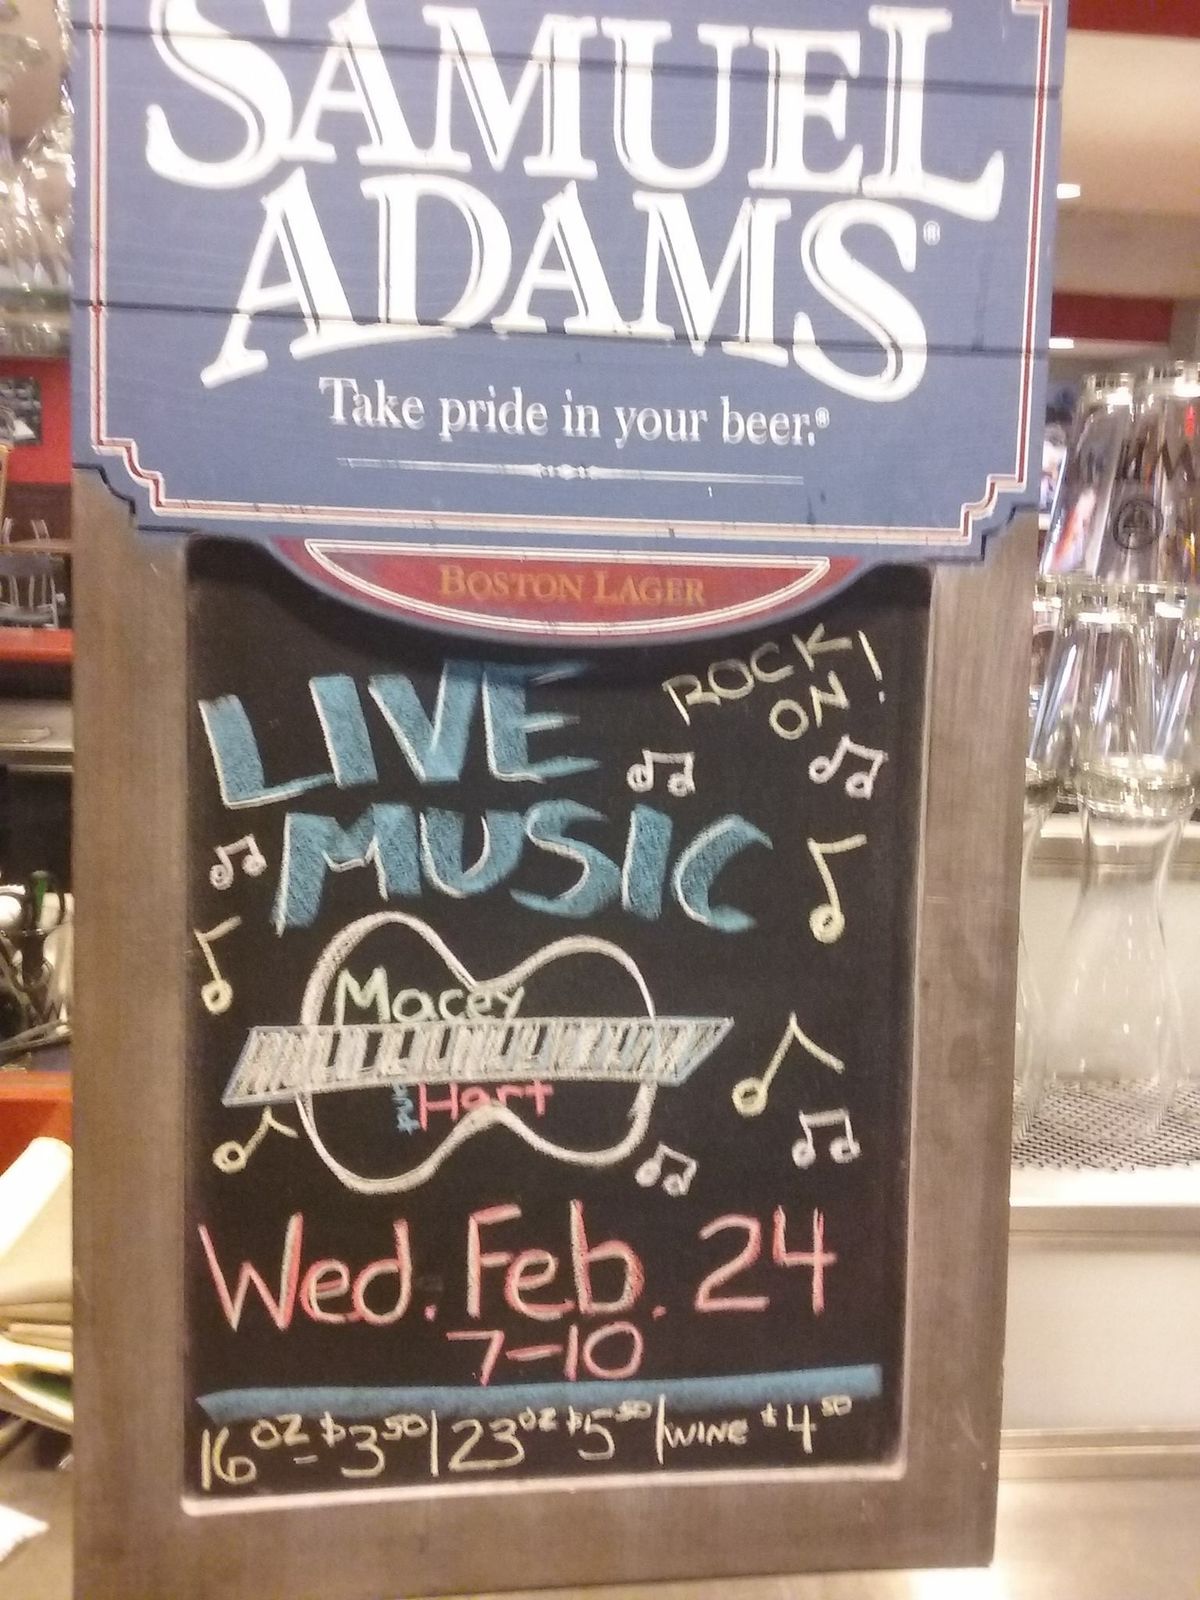 SAMUEL
ADAMS®
Take pride in your beer.®
BOSTON LAGER
ROCK
ON!
LIVE
MUSIC
Macey
and Hart
Wed. Feb. 24
7-10
16 OZ - $3 50 | 23 OZ $5 50 | WINE $4 50